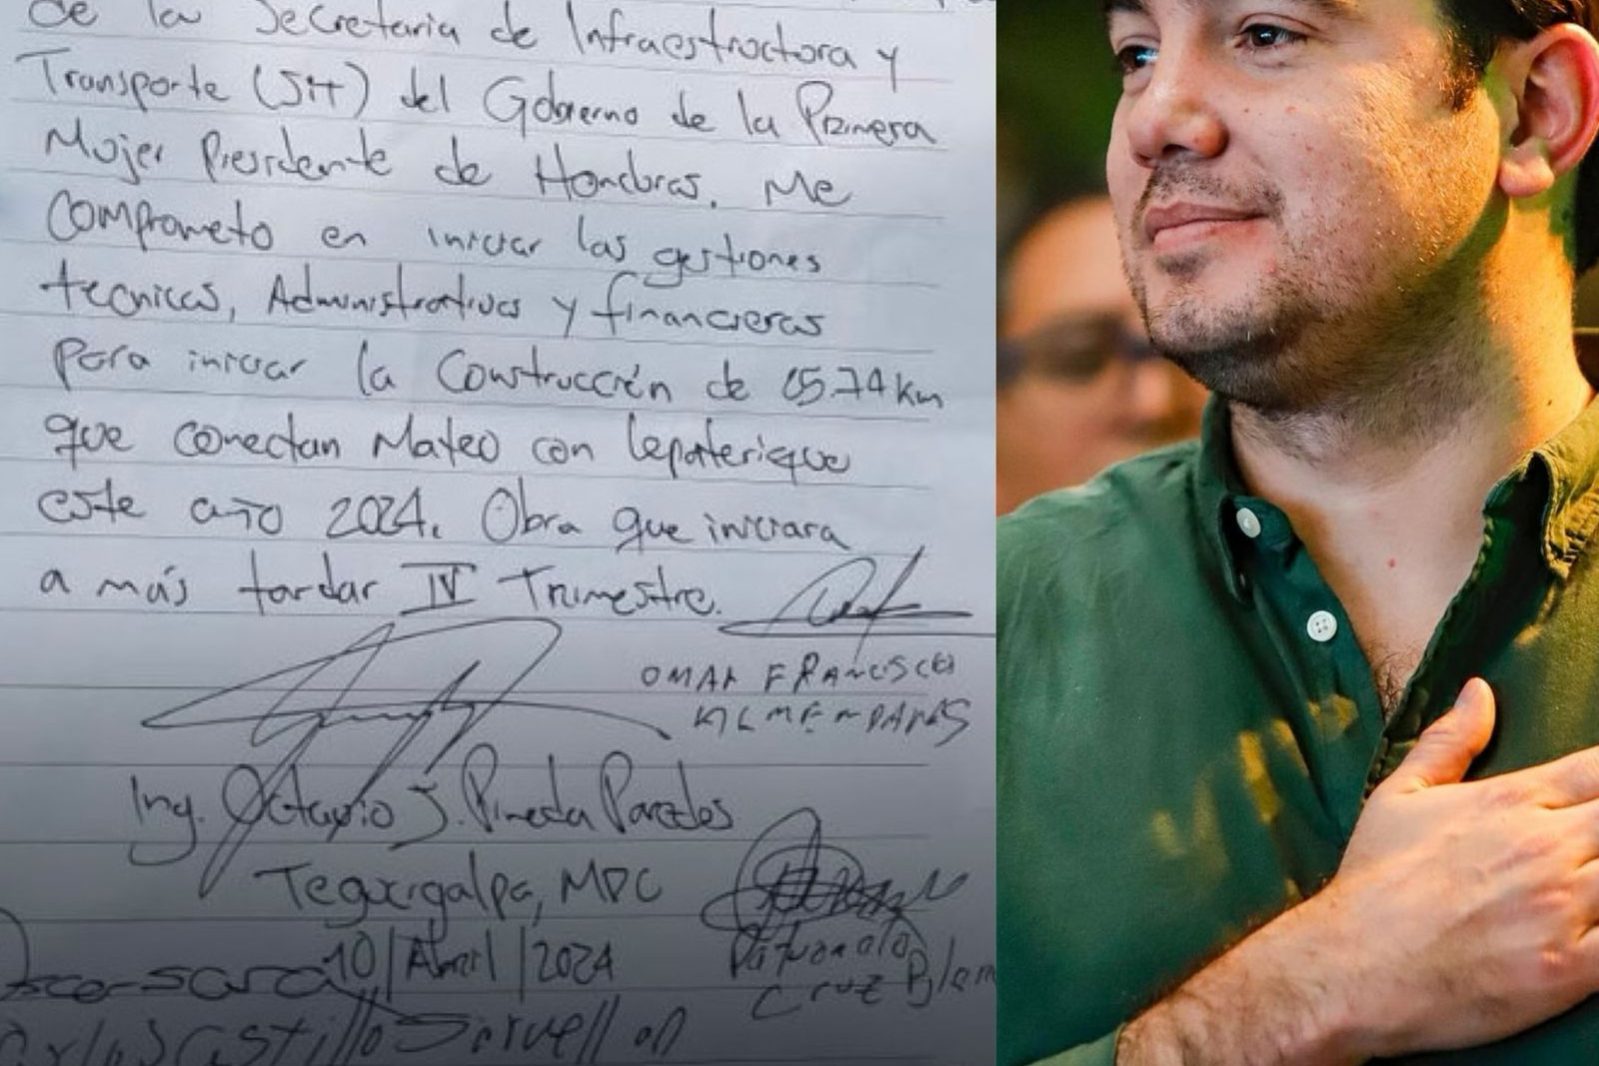 de la Secretaria de Infraestructora y
Transporte (SIT) del Gobierno de la Primera
Mujer Presidente de Honduras. Me
comprometo en iniciar las gestiones
tecnicas, Administrativas y financieras
para iniciar la Construcción de 15.74 km
que conectan Mateo con Lepaterique
este año 2024. Obra que iniciara
a más tardar IV Trimestre.
OMAR FRANCISCO
ALMENDARES
Ing. Octavio J. Pineda Paredes
Tegucigalpa, MDC
10/Abril/2024
Cruz
Carlos Castillo